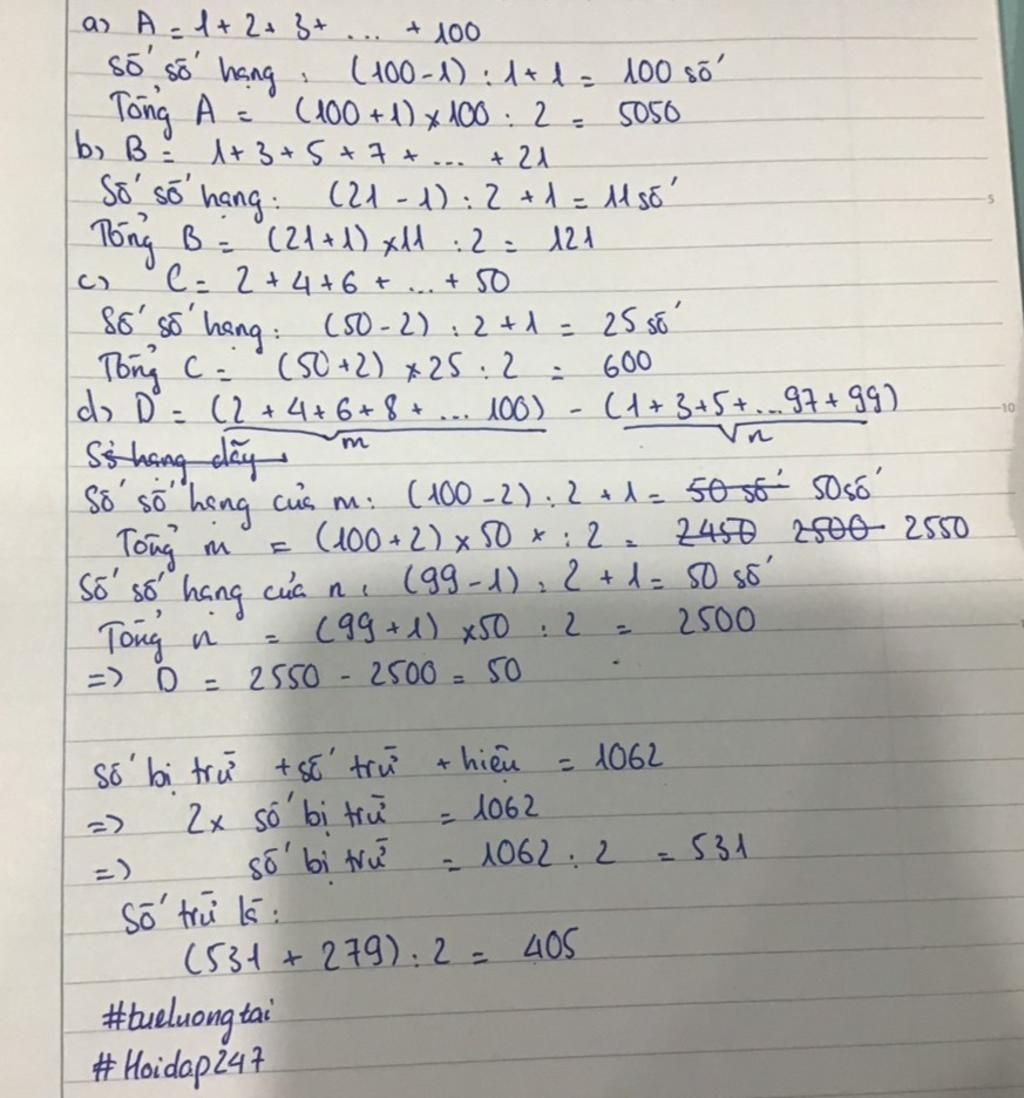 a) A = 1 + 2 + 3 + ... + 100
Số số hạng : (100 - 1) : 1 + 1 = 100 số
Tổng A = (100 + 1) x 100 : 2 = 5050
b) B = 1 + 3 + 5 + 7 + ... + 21
Số số hạng : (21 - 1) : 2 + 1 = 11 số
Tổng B = (21 + 1) x 11 : 2 = 121
c) C = 2 + 4 + 6 + ... + 50
Số số hạng : (50 - 2) : 2 + 1 = 25 số
Tổng C = (50 + 2) x 25 : 2 = 600
d) D = (2 + 4 + 6 + 8 + ... 100) - (1 + 3 + 5 + ... 97 + 99)
m n
Số hạng dãy
Số số hạng của m : (100 - 2) : 2 + 1 = 50 số 50 số
Tổng m = (100 + 2) x 50 x : 2 = 2450 2500 2550
Số số hạng của n : (99 - 1) : 2 + 1 = 50 số
Tổng n = (99 + 1) x 50 : 2 = 2500
=> D = 2550 - 2500 = 50
Số bị trừ + số trừ + hiệu = 1062
=> 2 x số bị trừ = 1062
=> số bị trừ = 1062 : 2 = 531
Số trừ là :
(531 + 279) : 2 = 405
#tueluongtai
#Hoidap247
5
10